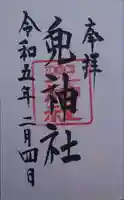 奉拝
兎神社
令和五年二月四日